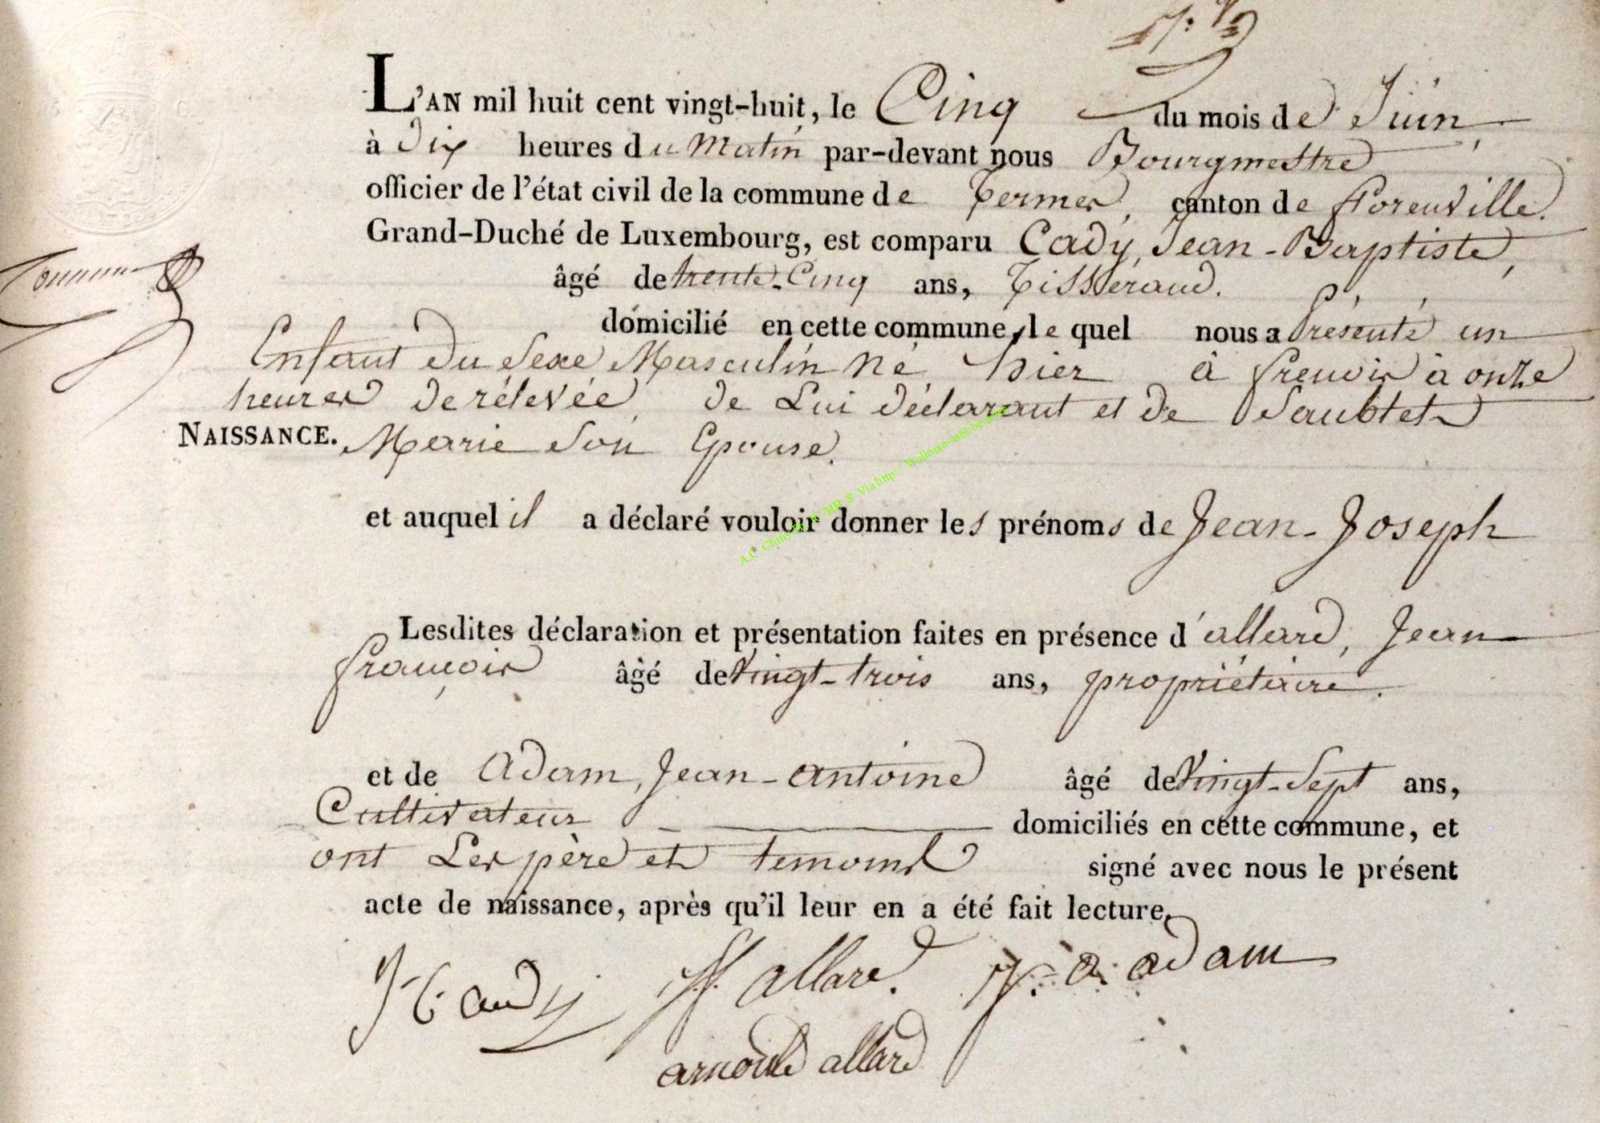 L'AN mil huit cent vingt-huit, le Cinq du mois de Juin
à dix heures du Matin par-devant nous Bourgmestre
officier de l'état civil de la commune de Termes, canton de florenville.
Grand-Duché de Luxembourg, est comparu Cady, Jean-Baptiste,
âgé de trente-Cinq ans, Tisserand.
domicilié en cette commune, le quel nous a Présenté un
Enfant du Sexe Masculin né hier à frenois à onze
heures de rélevée, de Lui déclarant et de Saublet
NAISSANCE. Marie Son Epouse.
et auquel il a déclaré vouloir donner les prénoms de Jean-Joseph
Lesdites déclaration et présentation faites en présence d'allard, Jean
françois âgé de Vingt-trois ans, propriétaire.
et de Adam, Jean-Antoine âgé de Vingt-Sept ans,
Cultivateur domiciliés en cette commune, et
ont Les père et temoins signé avec nous le présent
acte de naissance, après qu'il leur en a été fait lecture.
allard. J. a. adam
arnould allard